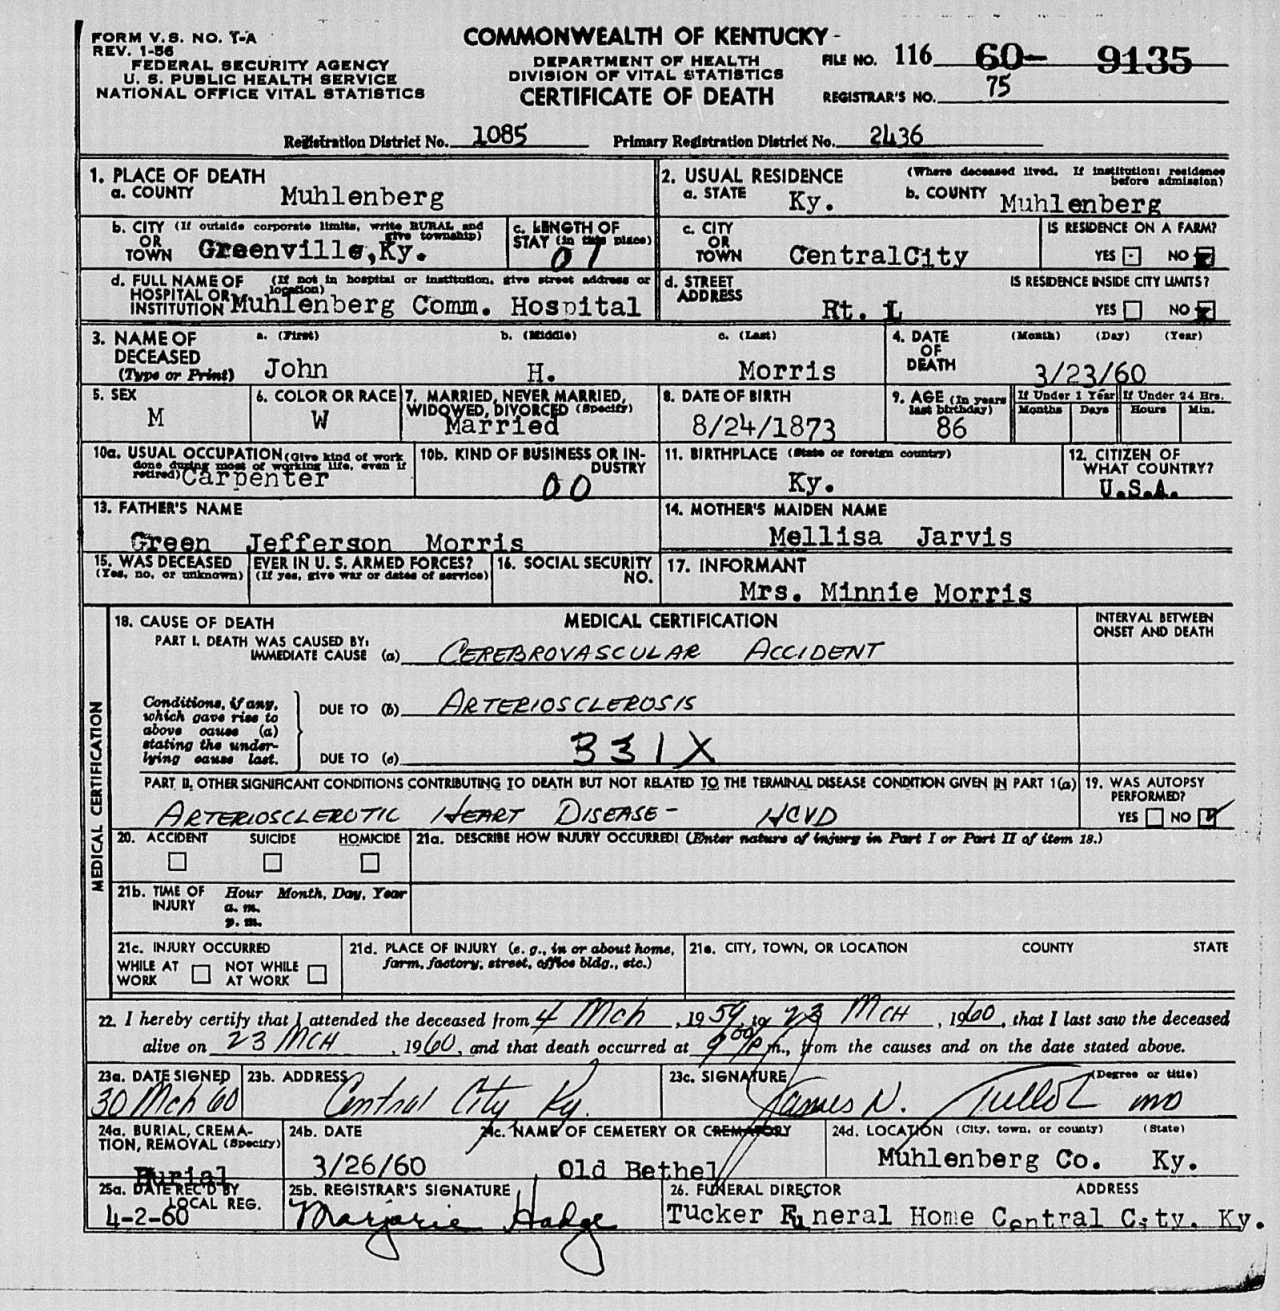 FORM V. S. NO. 1-A
REV. 1-56
FEDERAL SECURITY AGENCY
U. S. PUBLIC HEALTH SERVICE
NATIONAL OFFICE VITAL STATISTICS
COMMONWEALTH OF KENTUCKY
DEPARTMENT OF HEALTH
DIVISION OF VITAL STATISTICS
CERTIFICATE OF DEATH
FILE NO. 116 60- 9135
REGISTRAR'S NO. 75
Registration District No. 1085 Primary Registration District No. 2436
1. PLACE OF DEATH
a. COUNTY Muhlenberg
2. USUAL RESIDENCE (Where deceased lived. If institution: residence before admission)
a. STATE Ky. b. COUNTY Muhlenberg
b. CITY OR TOWN (If outside corporate limits, write RURAL and give township) Greenville,Ky.
c. LENGTH OF STAY (in this place) 07
c. CITY OR TOWN CentralCity
IS RESIDENCE ON A FARM?
YES NO
d. FULL NAME OF HOSPITAL OR INSTITUTION (If not in hospital or institution, give street address or location) Muhlenberg Comm. Hospital
d. STREET ADDRESS Rt. 1
IS RESIDENCE INSIDE CITY LIMITS?
YES NO
3. NAME OF DECEASED (Type or Print) a. (First) b. (Middle) c. (Last)
John H. Morris
4. DATE OF DEATH (Month) (Day) (Year)
3/23/60
5. SEX M
6. COLOR OR RACE W
7. MARRIED, NEVER MARRIED, WIDOWED, DIVORCED (Specify) Married
8. DATE OF BIRTH 8/24/1873
9. AGE (In years last birthday) 86
If Under 1 Year Months Days
If Under 24 Hrs. Hours Min.
10a. USUAL OCCUPATION (Give kind of work done during most of working life, even if retired) Carpenter
10b. KIND OF BUSINESS OR INDUSTRY 00
11. BIRTHPLACE (State or foreign country) Ky.
12. CITIZEN OF WHAT COUNTRY? U.S.A.
13. FATHER'S NAME
Green Jefferson Morris
14. MOTHER'S MAIDEN NAME
Mellisa Jarvis
15. WAS DECEASED EVER IN U. S. ARMED FORCES?
(Yes, no, or unknown) (If yes, give war or dates of service)
16. SOCIAL SECURITY NO.
17. INFORMANT
Mrs. Minnie Morris
MEDICAL CERTIFICATION
18. CAUSE OF DEATH MEDICAL CERTIFICATION
INTERVAL BETWEEN ONSET AND DEATH
PART I. DEATH WAS CAUSED BY:
IMMEDIATE CAUSE (a) CEREBROVASCULAR ACCIDENT
Conditions, if any, which gave rise to above cause (a) stating the underlying cause last.
DUE TO (b) ARTERIOSCLEROSIS
DUE TO (c) 331X
PART II. OTHER SIGNIFICANT CONDITIONS CONTRIBUTING TO DEATH BUT NOT RELATED TO THE TERMINAL DISEASE CONDITION GIVEN IN PART 1(a)
ARTERIOSCLEROTIC HEART DISEASE - HCVD
19. WAS AUTOPSY PERFORMED?
YES NO
20. ACCIDENT SUICIDE HOMICIDE
21a. DESCRIBE HOW INJURY OCCURRED! (Enter nature of injury in Part I or Part II of item 18.)
21b. TIME OF INJURY Hour Month, Day, Year
a. m.
p. m.
21c. INJURY OCCURRED
WHILE AT WORK NOT WHILE AT WORK
21d. PLACE OF INJURY (e. g., in or about home, farm, factory, street, office bldg., etc.)
21e. CITY, TOWN, OR LOCATION COUNTY STATE
22. I hereby certify that I attended the deceased from 4 Mch, 1959, to 23 MCH, 1960, that I last saw the deceased
alive on 23 MCH, 1960, and that death occurred at 9:00 P m., from the causes and on the date stated above.
23a. DATE SIGNED 30 Mch 60
23b. ADDRESS Central City Ky.
23c. SIGNATURE (Degree or title)
James N. MD
24a. BURIAL, CREMATION, REMOVAL (Specify) Burial
24b. DATE 3/26/60
24c. NAME OF CEMETERY OR CREMATORY Old Bethel
24d. LOCATION (City, town, or county) (State)
Muhlenberg Co. Ky.
25a. DATE REC'D BY LOCAL REG. 4-2-60
25b. REGISTRAR'S SIGNATURE Marjorie Hodge
26. FUNERAL DIRECTOR ADDRESS
Tucker Funeral Home Central City, Ky.